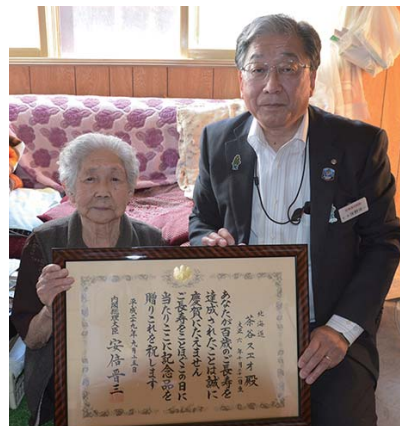 北海道
茶谷スエオ殿
大正六年
あなたが百歳のご長寿を
達成されたことは誠に
慶賀にたえません
ご長寿をことほぐこの日に
当たりここに記念品を
贈りこれを祝します
平成二十九年九月十五日
内閣総理大臣 安倍晋三